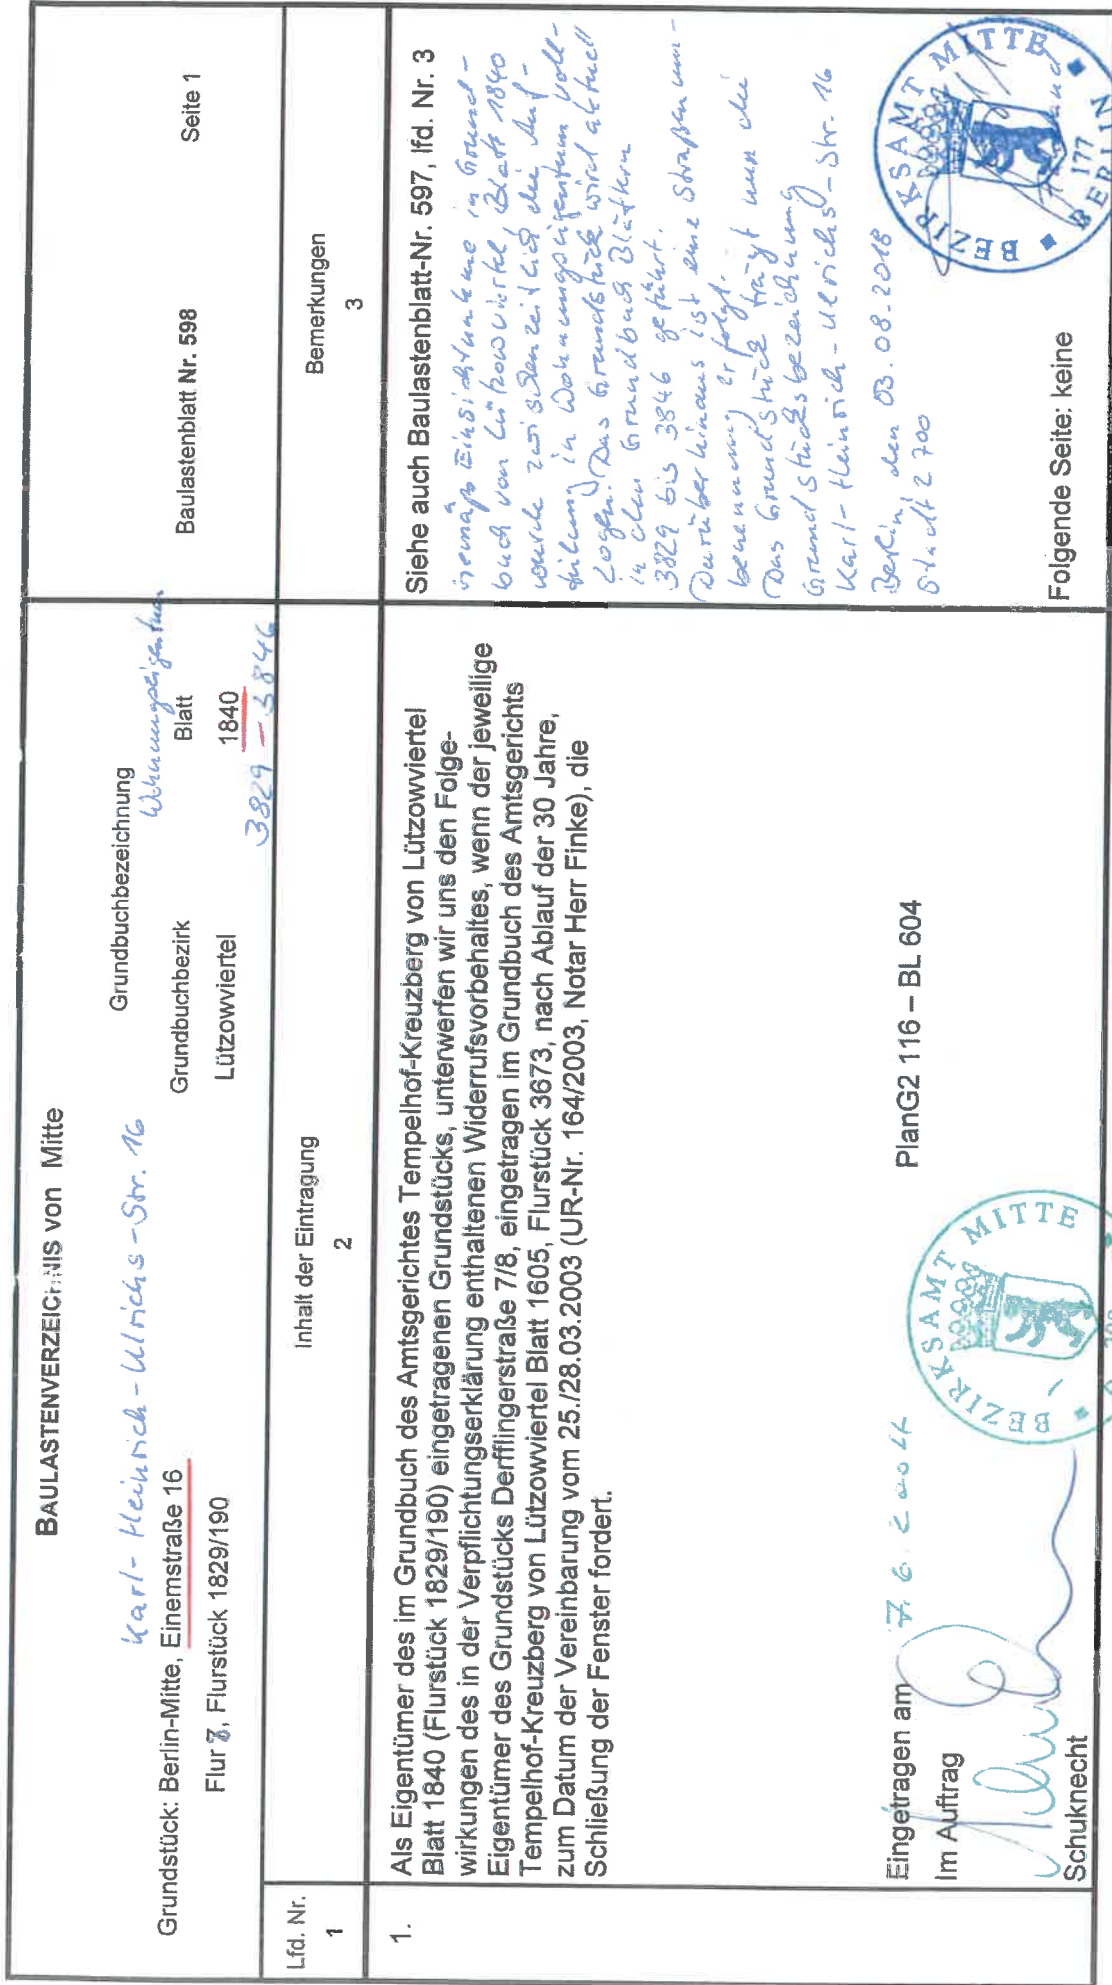 BAULASTENVERZEICHNIS von Mitte
Karl-Heinrich-Ulrichs-Str. 16
Grundstück: Berlin-Mitte, Einemstraße 16
Flur 8, Flurstück 1829/190
Grundbuchbezeichnung
Wohnungseigentum
Grundbuchbezirk Blatt
Lützowviertel 1840
3829 – 3846
Baulastenblatt Nr. 598 Seite 1
Lfd. Nr.
1
Inhalt der Eintragung
2
Bemerkungen
3
1.
Als Eigentümer des im Grundbuch des Amtsgerichtes Tempelhof-Kreuzberg von Lützowviertel
Blatt 1840 (Flurstück 1829/190) eingetragenen Grundstücks, unterwerfen wir uns den Folge-
wirkungen des in der Verpflichtungserklärung enthaltenen Widerrufsvorbehaltes, wenn der jeweilige
Eigentümer des Grundstücks Derfflingerstraße 7/8, eingetragen im Grundbuch des Amtsgerichts
Tempelhof-Kreuzberg von Lützowviertel Blatt 1605, Flurstück 3673, nach Ablauf der 30 Jahre,
zum Datum der Vereinbarung vom 25./28.03.2003 (UR-Nr. 164/2003, Notar Herr Finke), die
Schließung der Fenster fordert.
PlanG2 116 – BL 604
Eingetragen am 7.6.2004
Im Auftrag
Schuknecht
BEZIRKSAMT MITTE
Siehe auch Baulastenblatt-Nr. 597, lfd. Nr. 3
Gemäß Einsichtnahme in Grund-
buch von Lützowviertel, Blatt 1840
wurde zwischenzeitlich die Auf-
teilung in Wohnungseigentum voll-
zogen. Das Grundstück wird aktuell
in den Grundbuch Blättern
3829 bis 3846 geführt.
Darüber hinaus ist eine Straßenum-
benennung erfolgt.
Das Grundstück trägt nun die
Grundstücksbezeichnung
Karl-Heinrich-Ulrichs-Str. 16
Berlin, den 03.08.2018
Stadt 2 700
BEZIRKSAMT MITTE
177
BERLIN
Folgende Seite: keine